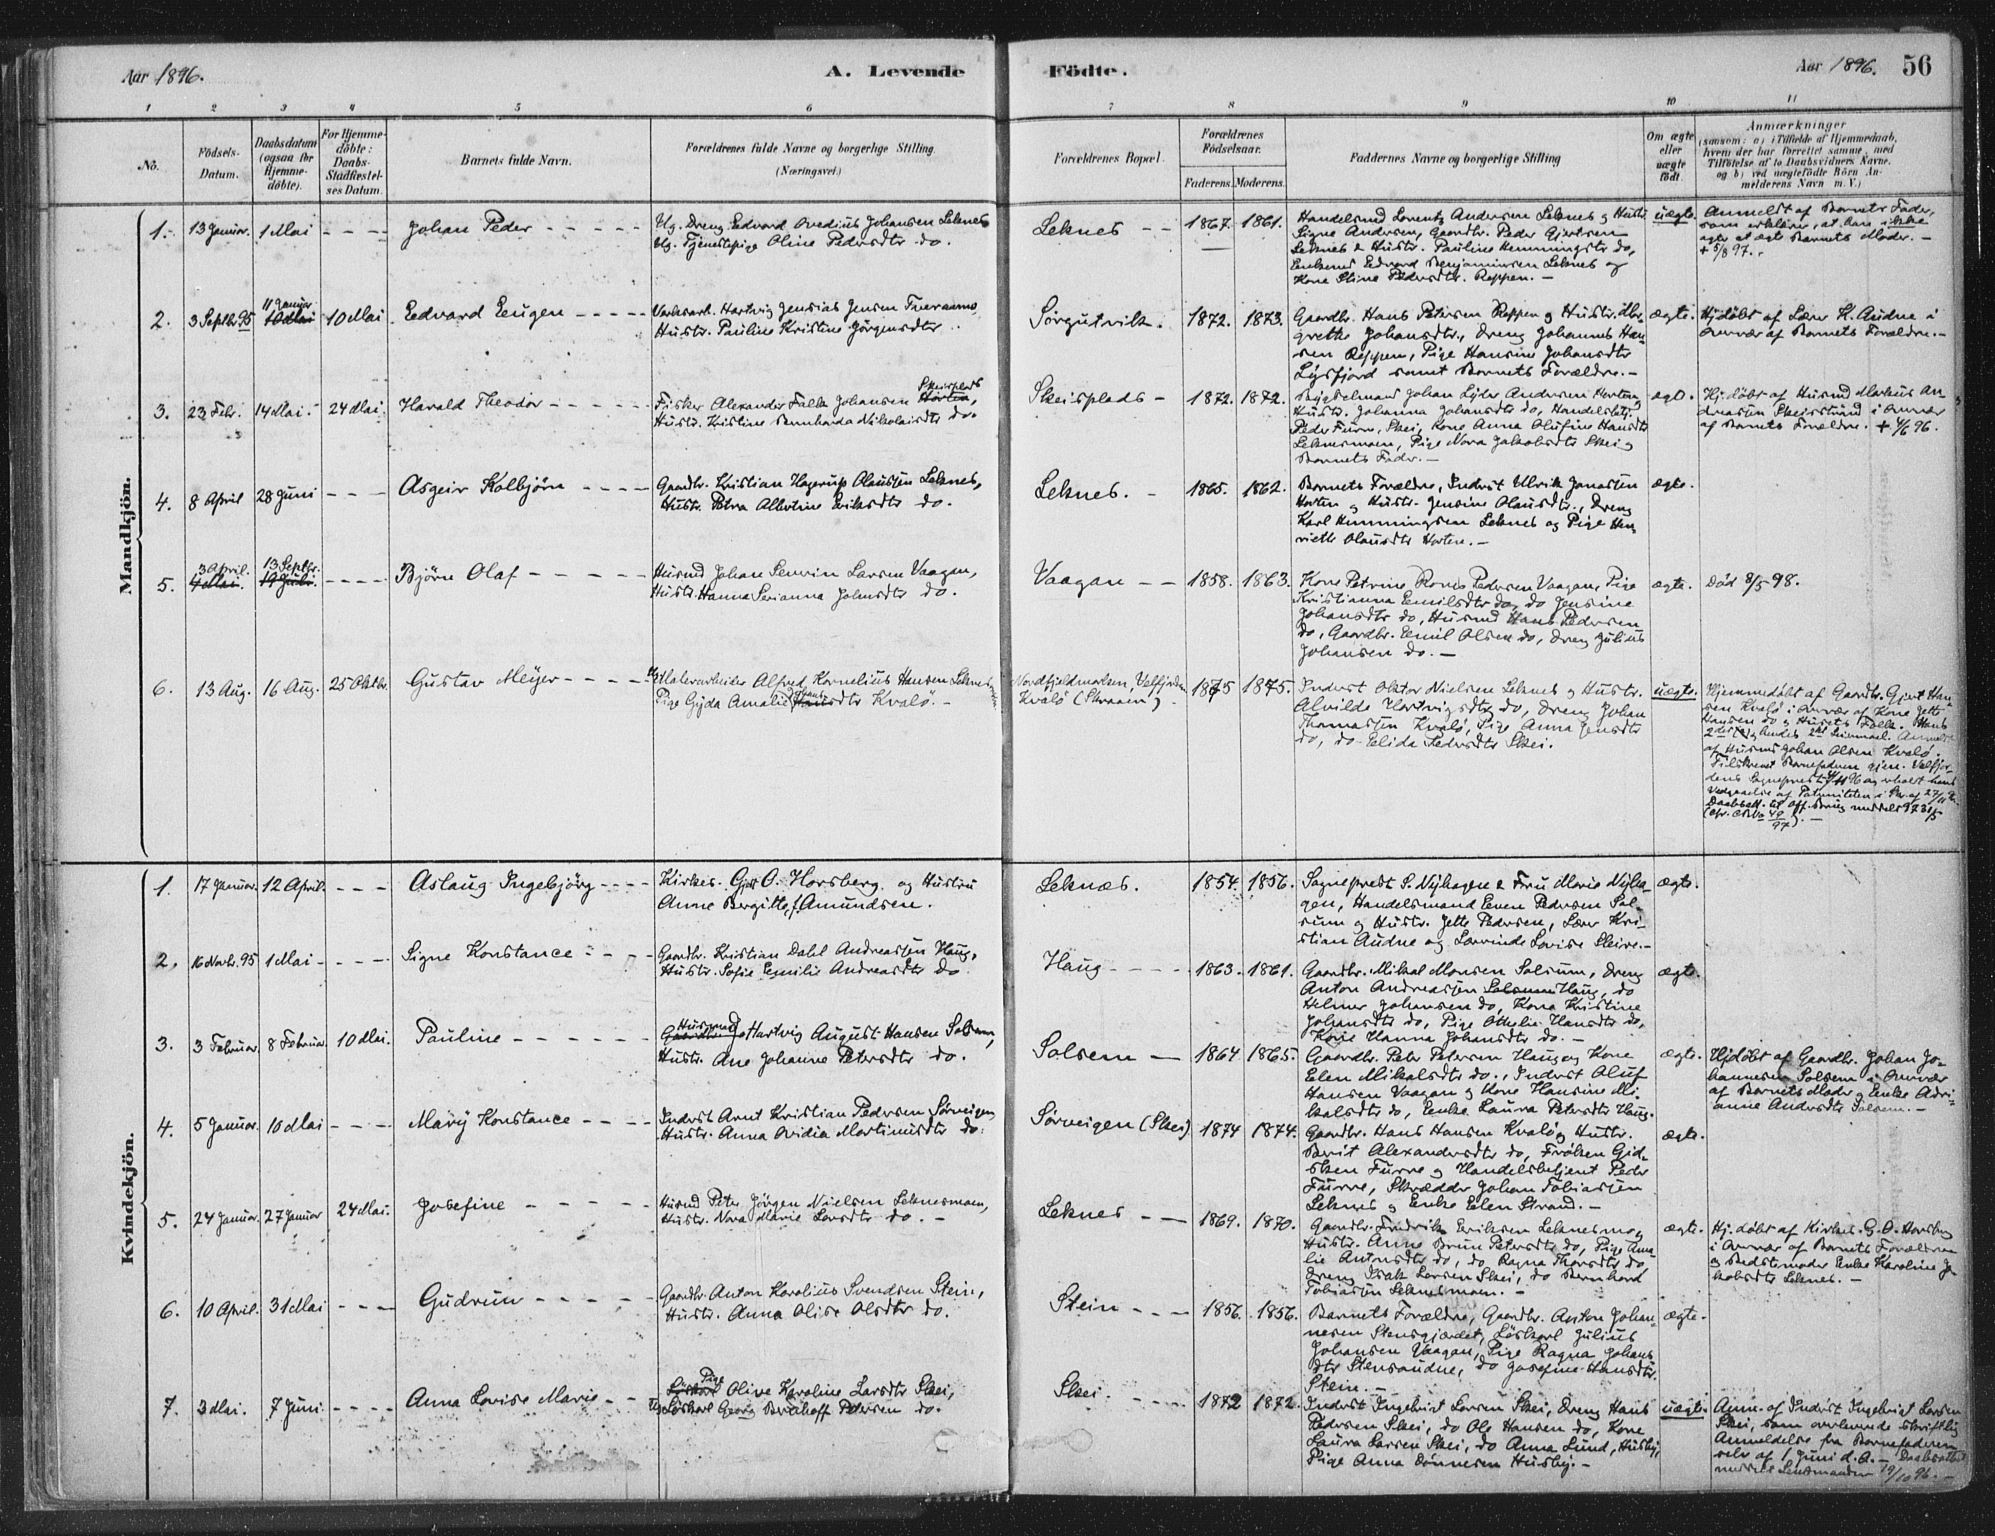 Aar 1896. A. Levende Födte. Aar 1896. 56
1 2 3 4 5 6 7 8 9 10 11
No. Födsels-Datum. Daabsdatum (ogsaa for Hjemme-döbte). For Hjemme-döbte: Daabs-Stadfæstel-ses Datum. Barnets fulde Navn. Forældrenes fulde Navne og borgerlige Stilling. (Næringsvei.) Forældrenes Bopæl. Forældrenes Födselsaar. Faderens. Moderens. Faddernes Navne og borgerlige Stilling Om ægte eller uægte födt. Anmærkninger (saasom: a) i Tilfælde af Hjemmedaab, hvem der har forrettet samme, med Tilföielse af to Daabsvidners Navne, og b) ved uægtefödte Börn An-melderens Navn m. V.)
Mandkjön.
1. 13 Januar. 1 Mai - - - - Johan Peder - - - - - Ug. Dreng Edvard Ovedius Johansen Leknes
Ug. Tjenestepige Oline Pedersdtr do. Leknes - - 1867. 1861.
Handelsmd Lorentz Andersen Leknes og Hustr.
Signe Andersen, Gaardbr. Peder Gjertsen
Leknes & Hustr. Pauline Hemmingsdtr do,
Enkemd Edvard Benjaminsen Leknes og
Kone Stine Pedersdtr. Reppen. -
uægte. Anmeldt af Barnets Fader,
som erklærer, at han ikke
agter at ægte Barnets Moder. -
+ 5/8 97.
2. 3 Septbr 95 11 Januar 10 Mai 10 Mai Edvard Eugen - - - - Hartvig Jensen
Hustr. Pauline Kristine Jörgensdtr Sörgutvik. 1872. 1873.
Gaardbr. Hans Petersen Reppen og Hustr.
grethe Johansdtr., Dreng Johannes Han-
sen Reppen, Pige Hansine Johansdtr
samt Barnets Forældre. -
ægte. Hj.döbt af Lærer K. Audne i
Overvær af Barnets Forældre. -
3. 23 Febr. 14 Mai. 24 Mai. Harald Theodor - - - - - Fisker Alexander Falk Johansen Horten, Skeisplads
Hustr. Kristine Bernharda Nikolaisdtr do. Skeisplads - 1872. 1872.
Johan Andersen Horten
Hustr. Johanna Johansdtr do, Handelsbetj.
Peder Furre, Skei, Kone Anna Olufine Hansdtr
Leknesmoen, Pige Nora Jakobsdtr Skei og
Barnets Fader. -
ægte. Hj.döbt af Husmd Markus An-
dreassen Skeisstrand i Overvær
af Barnets Forældre. + 4/6 96.
4. 8 April 28 Juni - - - Asgeir Kolbjörn - - - - Gaardbr. Kristian Hagerup Olaussen Leknes,
Hustr. Petra Albertine Eriksdtr do. Leknes. - 1865. 1862.
Barnets Forældre, Inderst Ulrik Jonassen
Horten og Hustr. Jensine Olausdtr., Dreng
Karl Hemmingsen Leknes og Pige Hen-
riette Olausdtr Horten. -
ægte.
5. 3 April. 4 Mai. 13 Septbr. 19 Juli. - - - - Björn Olaf - - - - - Husmd Johan Severin Larsen Vaagan,
Hustr. Hanna Serianna Johnsdtr do. Vaagan - - 1858. 1863.
Kone Petrine Pedersen Vaagan, Pige
Kristianna Emilsdtr do, do Jensine
Johansdtr do, Husmd Hans Pedersen
do, Gaardbr. Emil Olsen do, Dreng Julius
Johansen do. -
ægte. Död 8/5 98.
6. 13 Aug. 16 Aug. 25 Oktbr. Gustav Meÿer - - - - - Alfred Kornelius Hansen Leknes
Pige Gyda Amalie Johans Hansdtr Kvalö. - Nordfjeldmarken, Velfjorden
Kvalö (Skraaen). 1875 1875.
Inderst Oktor Nielsen Leknes og Hustr.
Alvilde Hartvigsdtr do, Dreng Johan
Thomassen Kvalö, Pige Anna Jensdtr
do, do Elida Pedersdtr Skei.
uægte. Hjemmedöbt af Gaardbr. Gjert Han-
sen Kvalö i Overvær af Kone Jette
Hansen do og Husets Folk. Hans
2det og hendes 2det Leiermaal. Anmeldt
af Husmd Johan Olsen Kvalö.
Tilskrevet Barnefaderen gjen. Velfjor-
dens Sognepræst 4/11 96 og erholdt hans
Vedgaaelse af Paterniteten i Skr. af 27/11 96.
Daabsatt. til off. Brug meddelt 31/5 97
Kvindekjön.
1. 17 Januar. 12 April. - - - Aslaug Ingebjörg - - - - Kirkes. Gjert O. Horsberg og Hustru
Anne Bergitte f. Amundsen. Leknæs. 1854. 1856.
Sognepræst S. Nÿhagen & Fru Marie Nÿha-
gen, Handelsmand Even Pedersen Sol-
sum og Hustr. Jette Pedersen, Lærer Kri-
stian Audne og Lærerinde Lovise Skeive. -
ægte.
2. 16 Novbr. 95 1 Mai - - - - Signe Konstance - - - - Gaardbr. Kristian Dahl Andreassen Haug,
Hustr. Sofie Emilie Andreasdtr do. Haug - - - - 1863. 1861.
Gaardbr. Mikal Monsen Solsum, Dreng
Anton Andreassen Solsum Haug, do
Helmer Johansen do, Kone Kristine
Johansdtr do, Pige Othelie Hansdtr do,
Kone Hanna Johansdtr do. -
ægte.
3. 3 Februar. 8 Februar. 10 Mai. Pauline - - - - - - Husmand Gaardbr. Hartvig August Hansen Solsem,
Hustr. Ane Johanne Petersdtr do. Solsem - 1864. 1865.
Gaardbr. Peter Petersen Haug og Kone
Elen Mikalsdtr do., Inderst Oluf
Hansen Vaagan og Kone Hansine Mi-
kalsdtr do, Enke Laura Petersdtr Haug.
ægte. Hj.döbt af Gaardbr. Johan Jo-
hannesen Solsem i Overvær
af Barnets Moder og Enke Adri-
anne Andersdtr Solsem. -
4. 5 Januar. 10 Mai - - - - Mary Konstance - - - - Inderst Arnt Kristian Pedersen Sörveigen
Hustr. Anna Ovidia Martinusdtr do. Sörveigen (Skei) 1874 1874.
Gaardbr. Hans Hansen Kvalö og Hustr.
Berit Alexandersdtr do, Fröken Gid-
sken Furre og Handelsbetjent Peder
Furre, Skrædder Johan Tobiassen
Leknes og Enke Elen Strand. -
ægte.
5. 24 Januar. 27 Januar 24 Mai. Josefine - - - - - Husmd Peter Jörgen Nielsen Leknesmoen,
Hustr. Nora Marie Larsdtr do. - Leknes - - 1869. 1870.
Gaardbr. Fredrik Eriksen Leknesmo og
Hustr. Anne Brun Petersdtr do, Pige Ama-
lie Antonsdtr do, do Ragna Thorsdtr do,
Dreng Isak Larsen Skei, do Bernhard
Tobiassen Leknesmoen. -
ægte. Hj.döbt af Kirkes. G. O. Horsberg
i Overvær af Barnets Forældre
og Bedstemoder Enke Karoline Ja-
kobsdtr Leknes. -
6. 10 April. 31 Mai - - - Gudrun - - - - - Gaardbr. Anton Karolius Svendsen Stein,
Hustr. Anna Olise Olsdtr do. Stein - - - 1856. 1856.
Barnets Forældre, Gaardbr. Anton Johan-
nesen Stensgjærdet, Löskarl Julius
Johansen Vaagan, Pige Ragna Johans
dtr Stensaudne, do Josefine Hansdtr.
Stein. -
ægte.
7. 3 Mai. 7 Juni. - - - - Anna Lovise Marie - - Löskarl Pige Olive Karoline Larsdtr Skei,
Ug. Löskarl Georg Berthoff Petersen do. Skei. - - - - 1872 1872.
Inderst Ingebrigt Larsen Skei, Dreng Hans
Pedersen Skei, do Ole Hansen do, Kone
Laura Larsen Skei, do Anna Lund, Husby,
Pige Anna Tönnesen Husby. -
uægte. Anm. af Inderst Ingebrigt Larsen
Skei, som overleverede skriftlig
Anmeldelse fra Barnefaderen
selv af 1 Juni d. A. - Daabsattest
meddelt Lensmanden 19/10 96. -